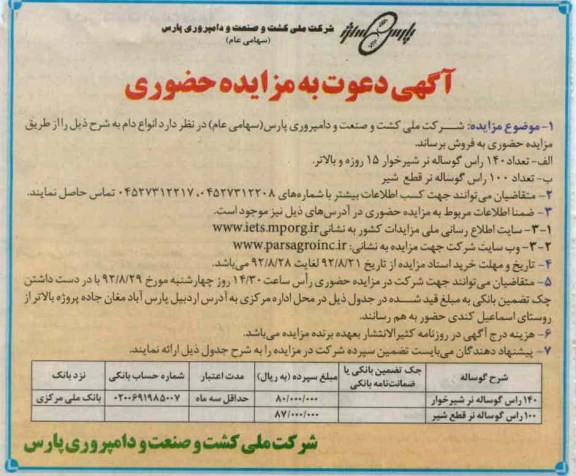 پارس ساژ
شرکت ملی کشت و صنعت و دامپروری پارس
(سهامی عام)
آگهی دعوت به مزایده حضوری
۱- موضوع مزایده: شرکت ملی کشت و صنعت و دامپروری پارس(سهامی عام) در نظر دارد انواع دام به شرح ذیل را از طریق
مزایده حضوری به فروش برساند.
الف- تعداد ۱۴۰ راس گوساله نر شیرخوار ۱۵ روزه و بالاتر.
ب- تعداد ۱۰۰ راس گوساله نر قطع شیر
۲- متقاضیان می‌توانند جهت کسب اطلاعات بیشتر با شماره‌های ۰۴۵۲۷۳۱۲۲۰۸، ۰۴۵۲۷۳۱۲۲۱۷ تماس حاصل نمایند.
۳- ضمنا اطلاعات مربوط به مزایده حضوری در آدرس‌های ذیل نیز موجود است.
۳-۱- سایت اطلاع رسانی ملی مزایدات کشور به نشانی www.iets.mporg.ir
۳-۲- وب سایت شرکت جهت مزایده به نشانی: www.parsagroinc.ir
۴- تاریخ و مهلت خرید اسناد مزایده از تاریخ ۹۲/۸/۲۱ لغایت ۹۲/۸/۲۸ می‌باشد.
۵- متقاضیان می‌توانند جهت شرکت در مزایده حضوری رأس ساعت ۱۴/۳۰ روز چهارشنبه مورخ ۹۲/۸/۲۹ با در دست داشتن
چک تضمین بانکی به مبلغ قید شده در جدول ذیل در محل اداره مرکزی به آدرس اردبیل پارس آباد مغان جاده پروژه بالاتر از
روستای اسماعیل کندی حضور به هم رسانند.
۶- هزینه درج آگهی در روزنامه کثیرالانتشار بعهده برنده مزایده می‌باشد.
۷- پیشنهاد دهندگان می‌بایست تضمین سپرده شرکت در مزایده را به شرح جدول ذیل ارائه نمایند.
شرح گوساله | چک تضمین بانکی یا ضمانت‌نامه بانکی | مبلغ سپرده (به ریال) | مدت اعتبار | شماره حساب بانکی | نزد بانک
۱۴۰ راس گوساله نر شیرخوار | ۸۰/۰۰۰/۰۰۰ | حداقل سه ماه | ۰۲۰۰۶۹۱۹۸۵۰۰۷ | بانک ملی مرکزی
۱۰۰ راس گوساله نر قطع شیر | ۸۷/۰۰۰/۰۰۰
شرکت ملی کشت و صنعت و دامپروری پارس